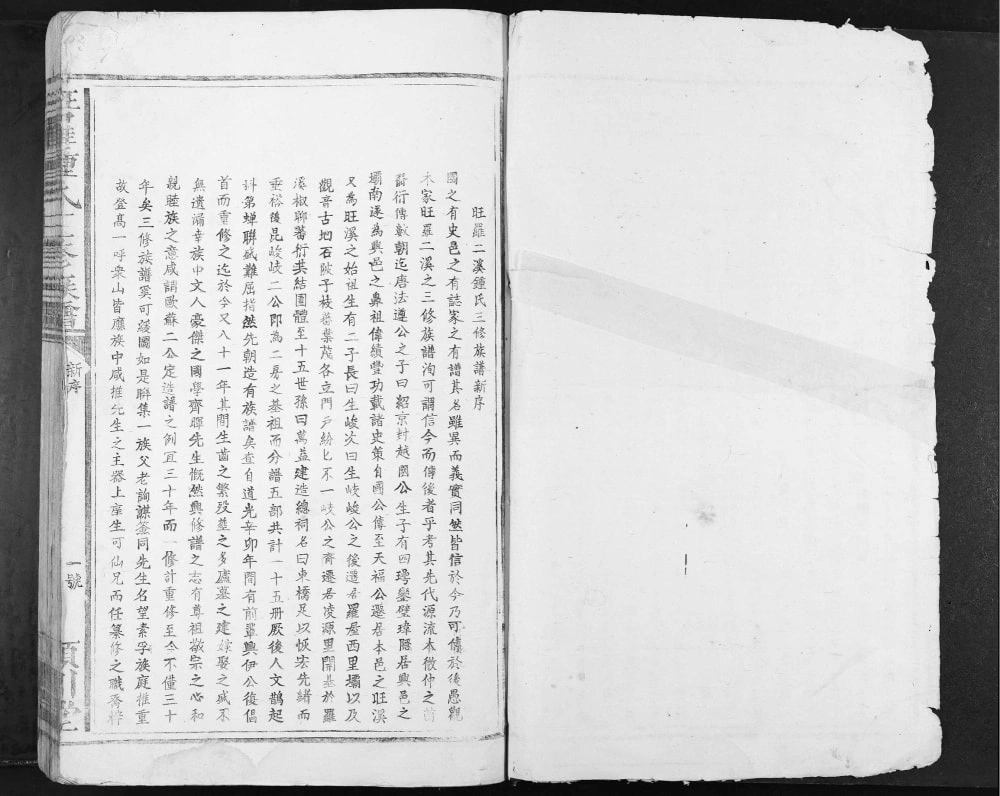 旺羅二溪鍾氏三修族譜新序
國之有史邑之有誌家之有譜其名雖異而義實同然皆信於今乃可傳於後愚觀
本家旺羅二溪之三修族譜洵可謂信今而傳後者乎考其先代源流本微仲之苗
裔衍傳數朝迄唐法遵公之子曰紹京封越國公生子有四璕鑾璧瑋隱居興邑之
壩南遂為興邑之鼻祖偉績豐功載諸史策自國公傳至天福公遷居本邑之旺溪
又為旺溪之始祖生有二子長曰生峻次曰生岐峻公之後還居羅屋西里壩以及
觀音古地石陂子枝蕃葉茂各立門戶紛匕不一岐公之裔遷居凌源里開基於羅
溪椒聊蕃衍共結團體至十五世孫曰萬盖建造總祠名曰東橋足以恢宏先緒而
垂裕後昆峻岐二公即為二房之基祖而分譜五部共計一十五冊厥後人文鵲起
科第蟬聯盛難屈指然先朝造有族譜矣查自道光辛卯年間有前輩興伊公復倡
首而重修之迄於今又八十一年其間生齒之繁歿葬之多廬墓之建嫁娶之盛不
無遺漏幸族中文人豪傑之國學齊暉先生慨然興修譜之志有尊祖敬宗之心和
親睦族之意咸謂歐蘇二公定造譜之例宜三十年而一修計重修至今不僅三十
年矣三修族譜奚可緩圖如是聯集一族父老詢謀僉同先生名望素孚族庭推重
故登高一呼衆山皆靡族中咸推先生之主器上座生可仙兄而任纂修之職齊梓
旺羅鍾氏三修族譜
新序
一號
潁川堂